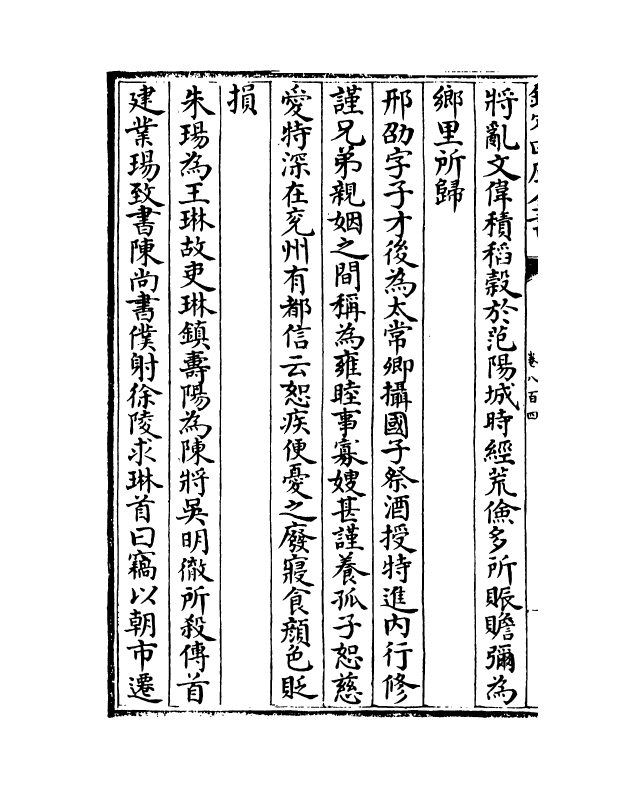 卷八百四
將亂文偉積稻穀於范陽城時經荒儉多所賑贍彌為
鄉里所歸
邢劭字子才後為太常卿攝國子祭酒授特進內行修
謹兄弟親姻之間稱為雍睦事寡嫂甚謹養孤子恕慈
愛特深在兖州有都信云恕疾便憂之廢寢食顔色貶
損
朱瑒為王琳故吏琳鎮壽陽為陳將吳明徹所殺傳首
建業瑒致書陳尚書僕射徐陵求琳首曰竊以朝市遷